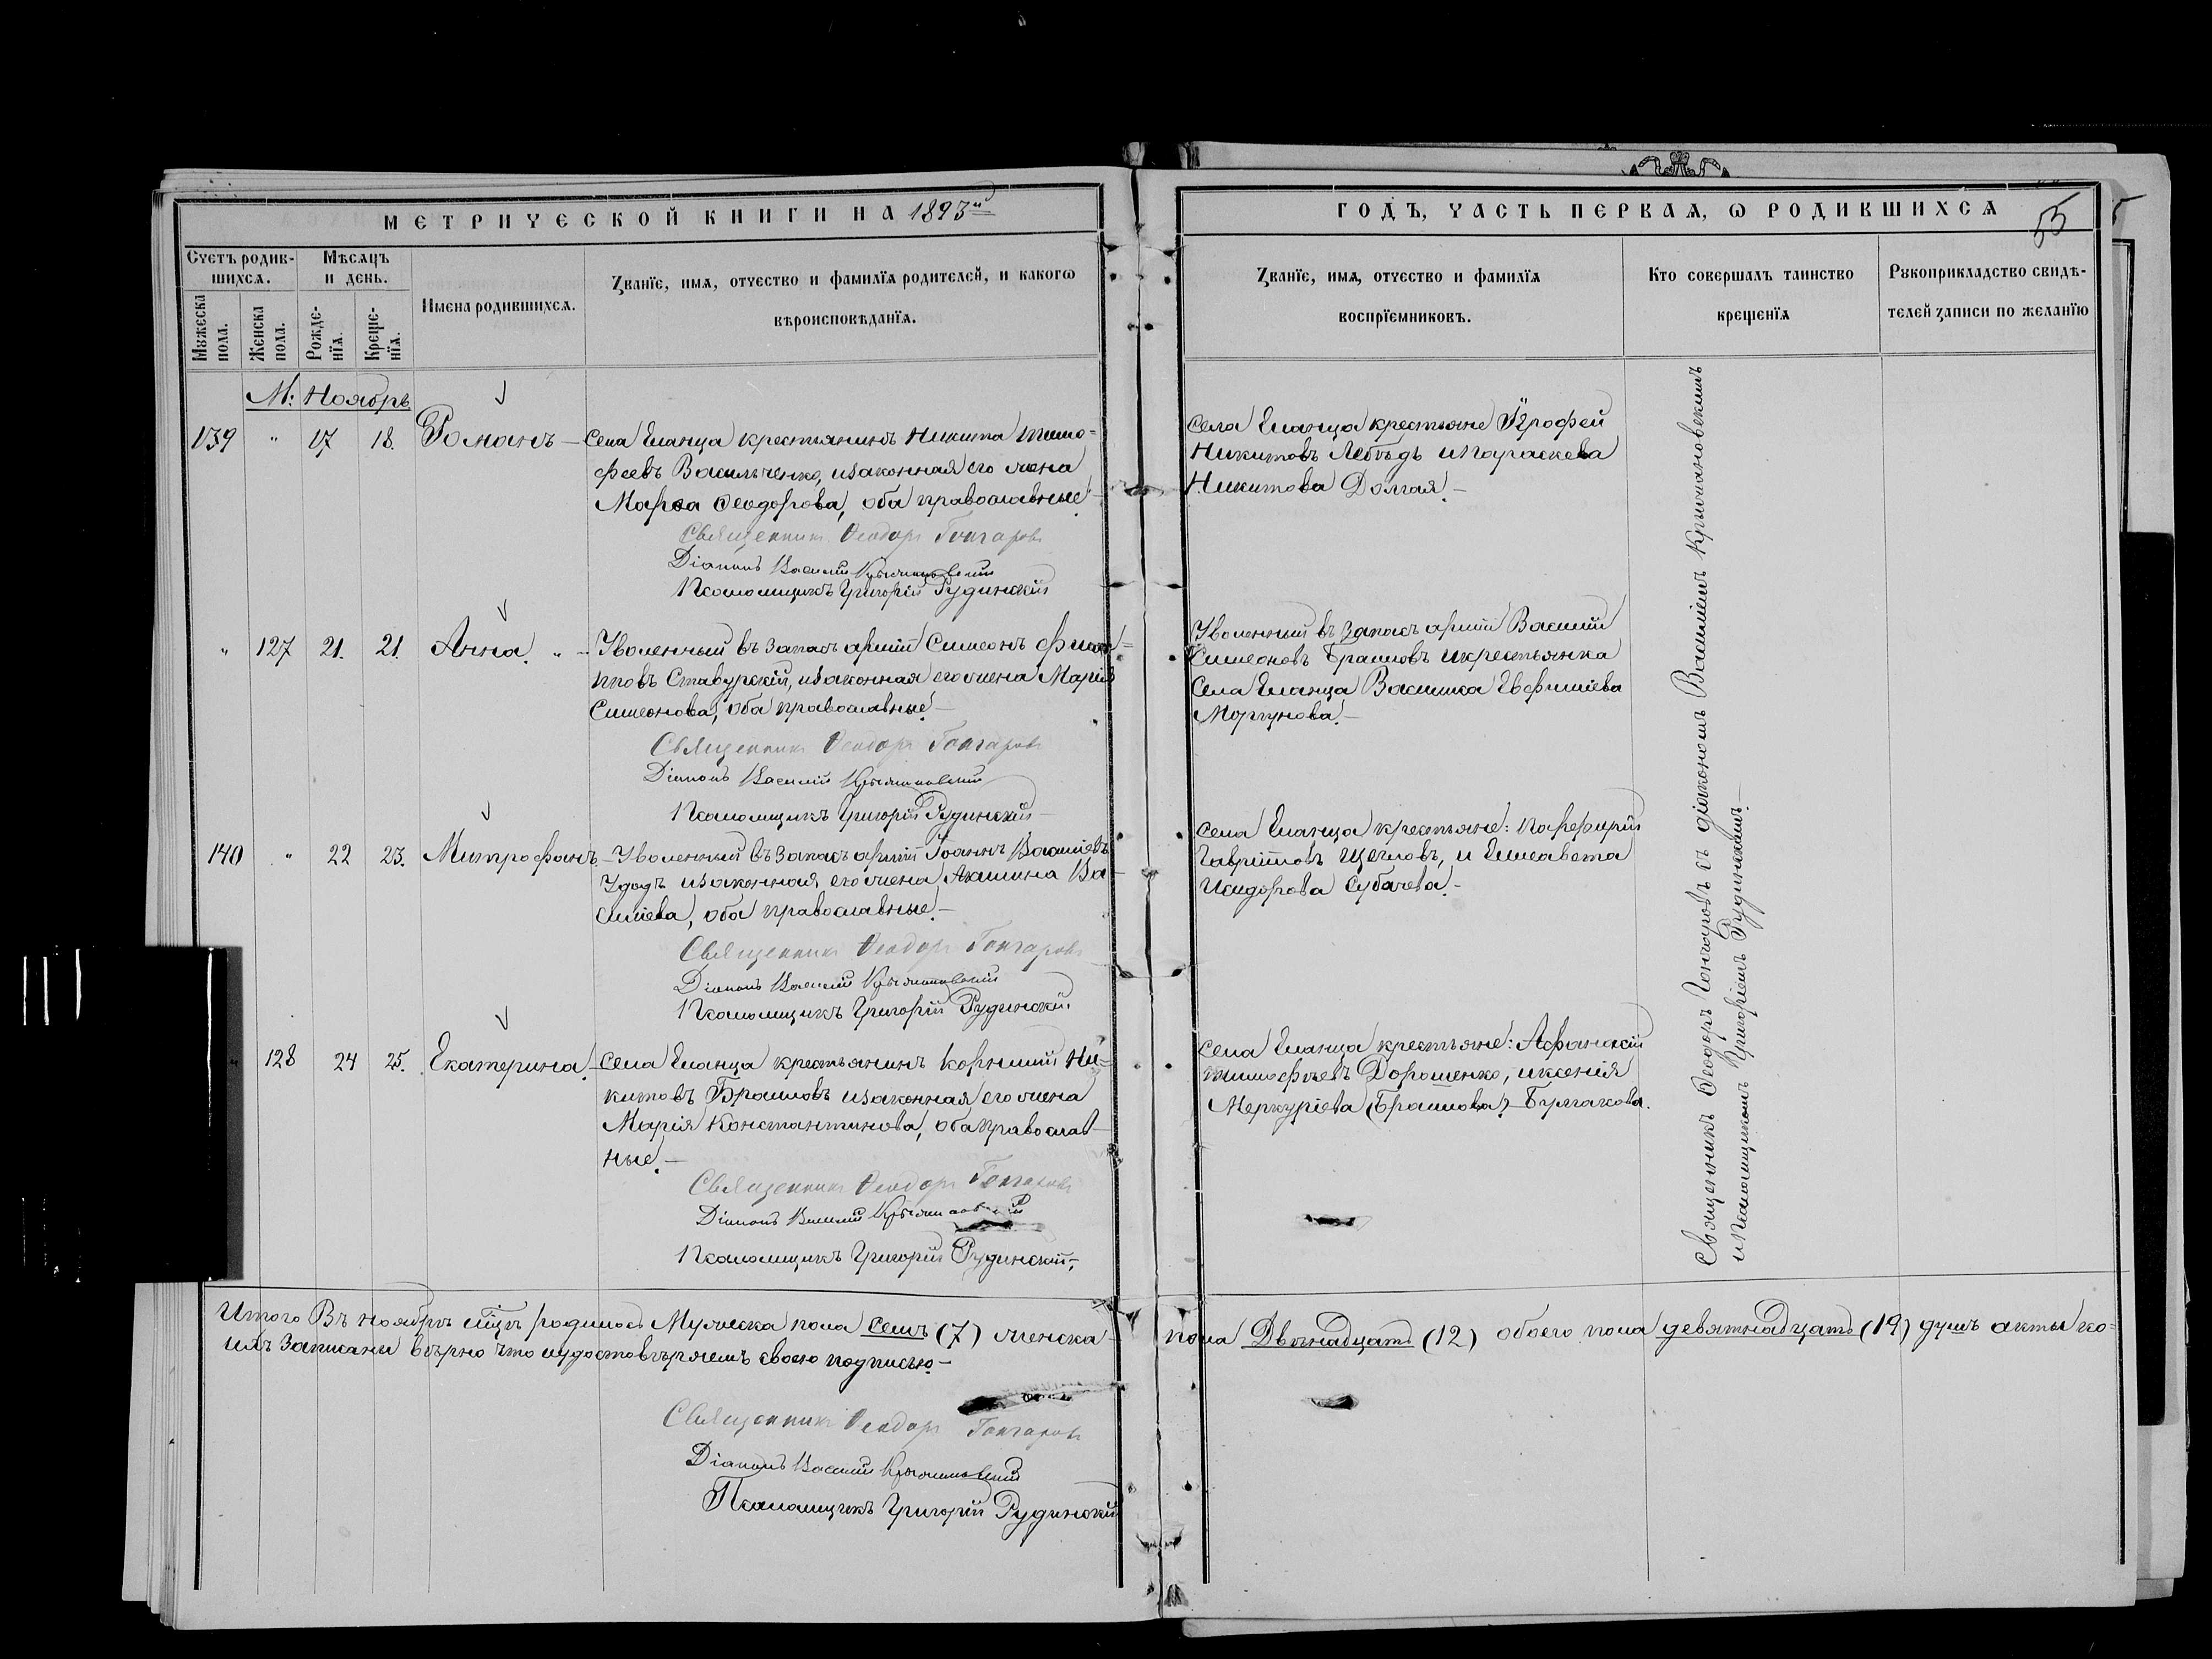 МЕТРИЧЕСКОЙ КНИГИ НА 1893й
ГОДЪ, ЧАСТЬ ПЕРВАЯ, Ѡ РОДИВШИХСЯ
55
Счетъ родив-
шихся.
Мѣсяцъ
и день.
Имена родившихся.
Званїе, имя, отчество и фамилїя родителей, и какогѡ
вѣроисповѣданїя.
Мужеска
пола.
Женска
пола.
Рожде-
нїя.
Креще-
нїя.
Званїе, имя, отчество и фамилїя
воспрїемниковъ.
Кто совершалъ таинство
крещенїя
Рукоприкладство свидѣ-
телей записи по желанїю
М: Ноябрь
139 " 17 18. Романъ — Села Еланца крестьянинъ Никита Тимо=
феевъ Васильченко, изаконная его жена
Марѳа Ѳеодорова, оба православные
Священникъ Ѳеодоръ Гончаровъ
Діаконъ Василій Крыжановскій
Псаломщикъ Григорій Рудинскій
Села Еланца крестьяне Ерофей
Никитовъ Лебѣдь и Параскева
Никитова Долгая. —
" 127 21. 21. Анна. " — Уволенный въ запасъ арміи Симеонъ Филип=
повъ Ставурскій, изаконная его жена Марія
Симеонова, оба православные. —
Священникъ Ѳеодоръ Гончаровъ
Діаконъ Василій Крыжановскій
Псаломщикъ Григорій Рудинскій
Уволенный въ запасъ арміи Василій
Симеоновъ Браиловъ икрестьянка
Села Еланца Васишка Евфиміева
Моргунова. —
140 " 22 23. Митрофанъ. — Уволенный въ запасъ арміи Іоаннъ Василіевъ
Удодъ изаконная его жена Акилина Ва-
силіева, оба православные. —
Священникъ Ѳеодоръ Гончаровъ
Діаконъ Василій Крыжановскій
Псаломщикъ Григорій Рудинскій
Села Еланца крестьяне: Порфирій
Гавріиловъ Щегловъ, и Елисавета
Исидорова Субачева. —
" 128 24 25. Екатерина. — Села Еланца крестьянинъ Корнилій Ни=
китовъ Браиловъ изаконная его жена
Марія Константинова, оба православ-
ные. —
Священникъ Ѳеодоръ Гончаровъ
Діаконъ Василій Крыжановскій
Псаломщикъ Григорій Рудинскій. —
Села Еланца крестьяне: Афанасій
Тимофѣевъ Дорошенко, иксенія
Меркуріева (Браилова) — Булгакова.
Священникъ Ѳеодоръ Гончаровъ съ діакономъ Василіемъ Крыжановскимъ
и Псаломщикомъ Григоріемъ Рудинскимъ. —
Итого Въ ноябрѣ мцѣ родилось Мужеска пола семь (7) женска пола Двѣнадцать (12) обоего пола девятнадцать (19) душъ акты ко=
ихъ Записаны вѣрно что иудостовѣряемъ своею подписью. —
Священникъ Ѳеодоръ Гончаровъ
Діаконъ Василій Крыжановскій
Псаломщикъ Григорій Рудинскій